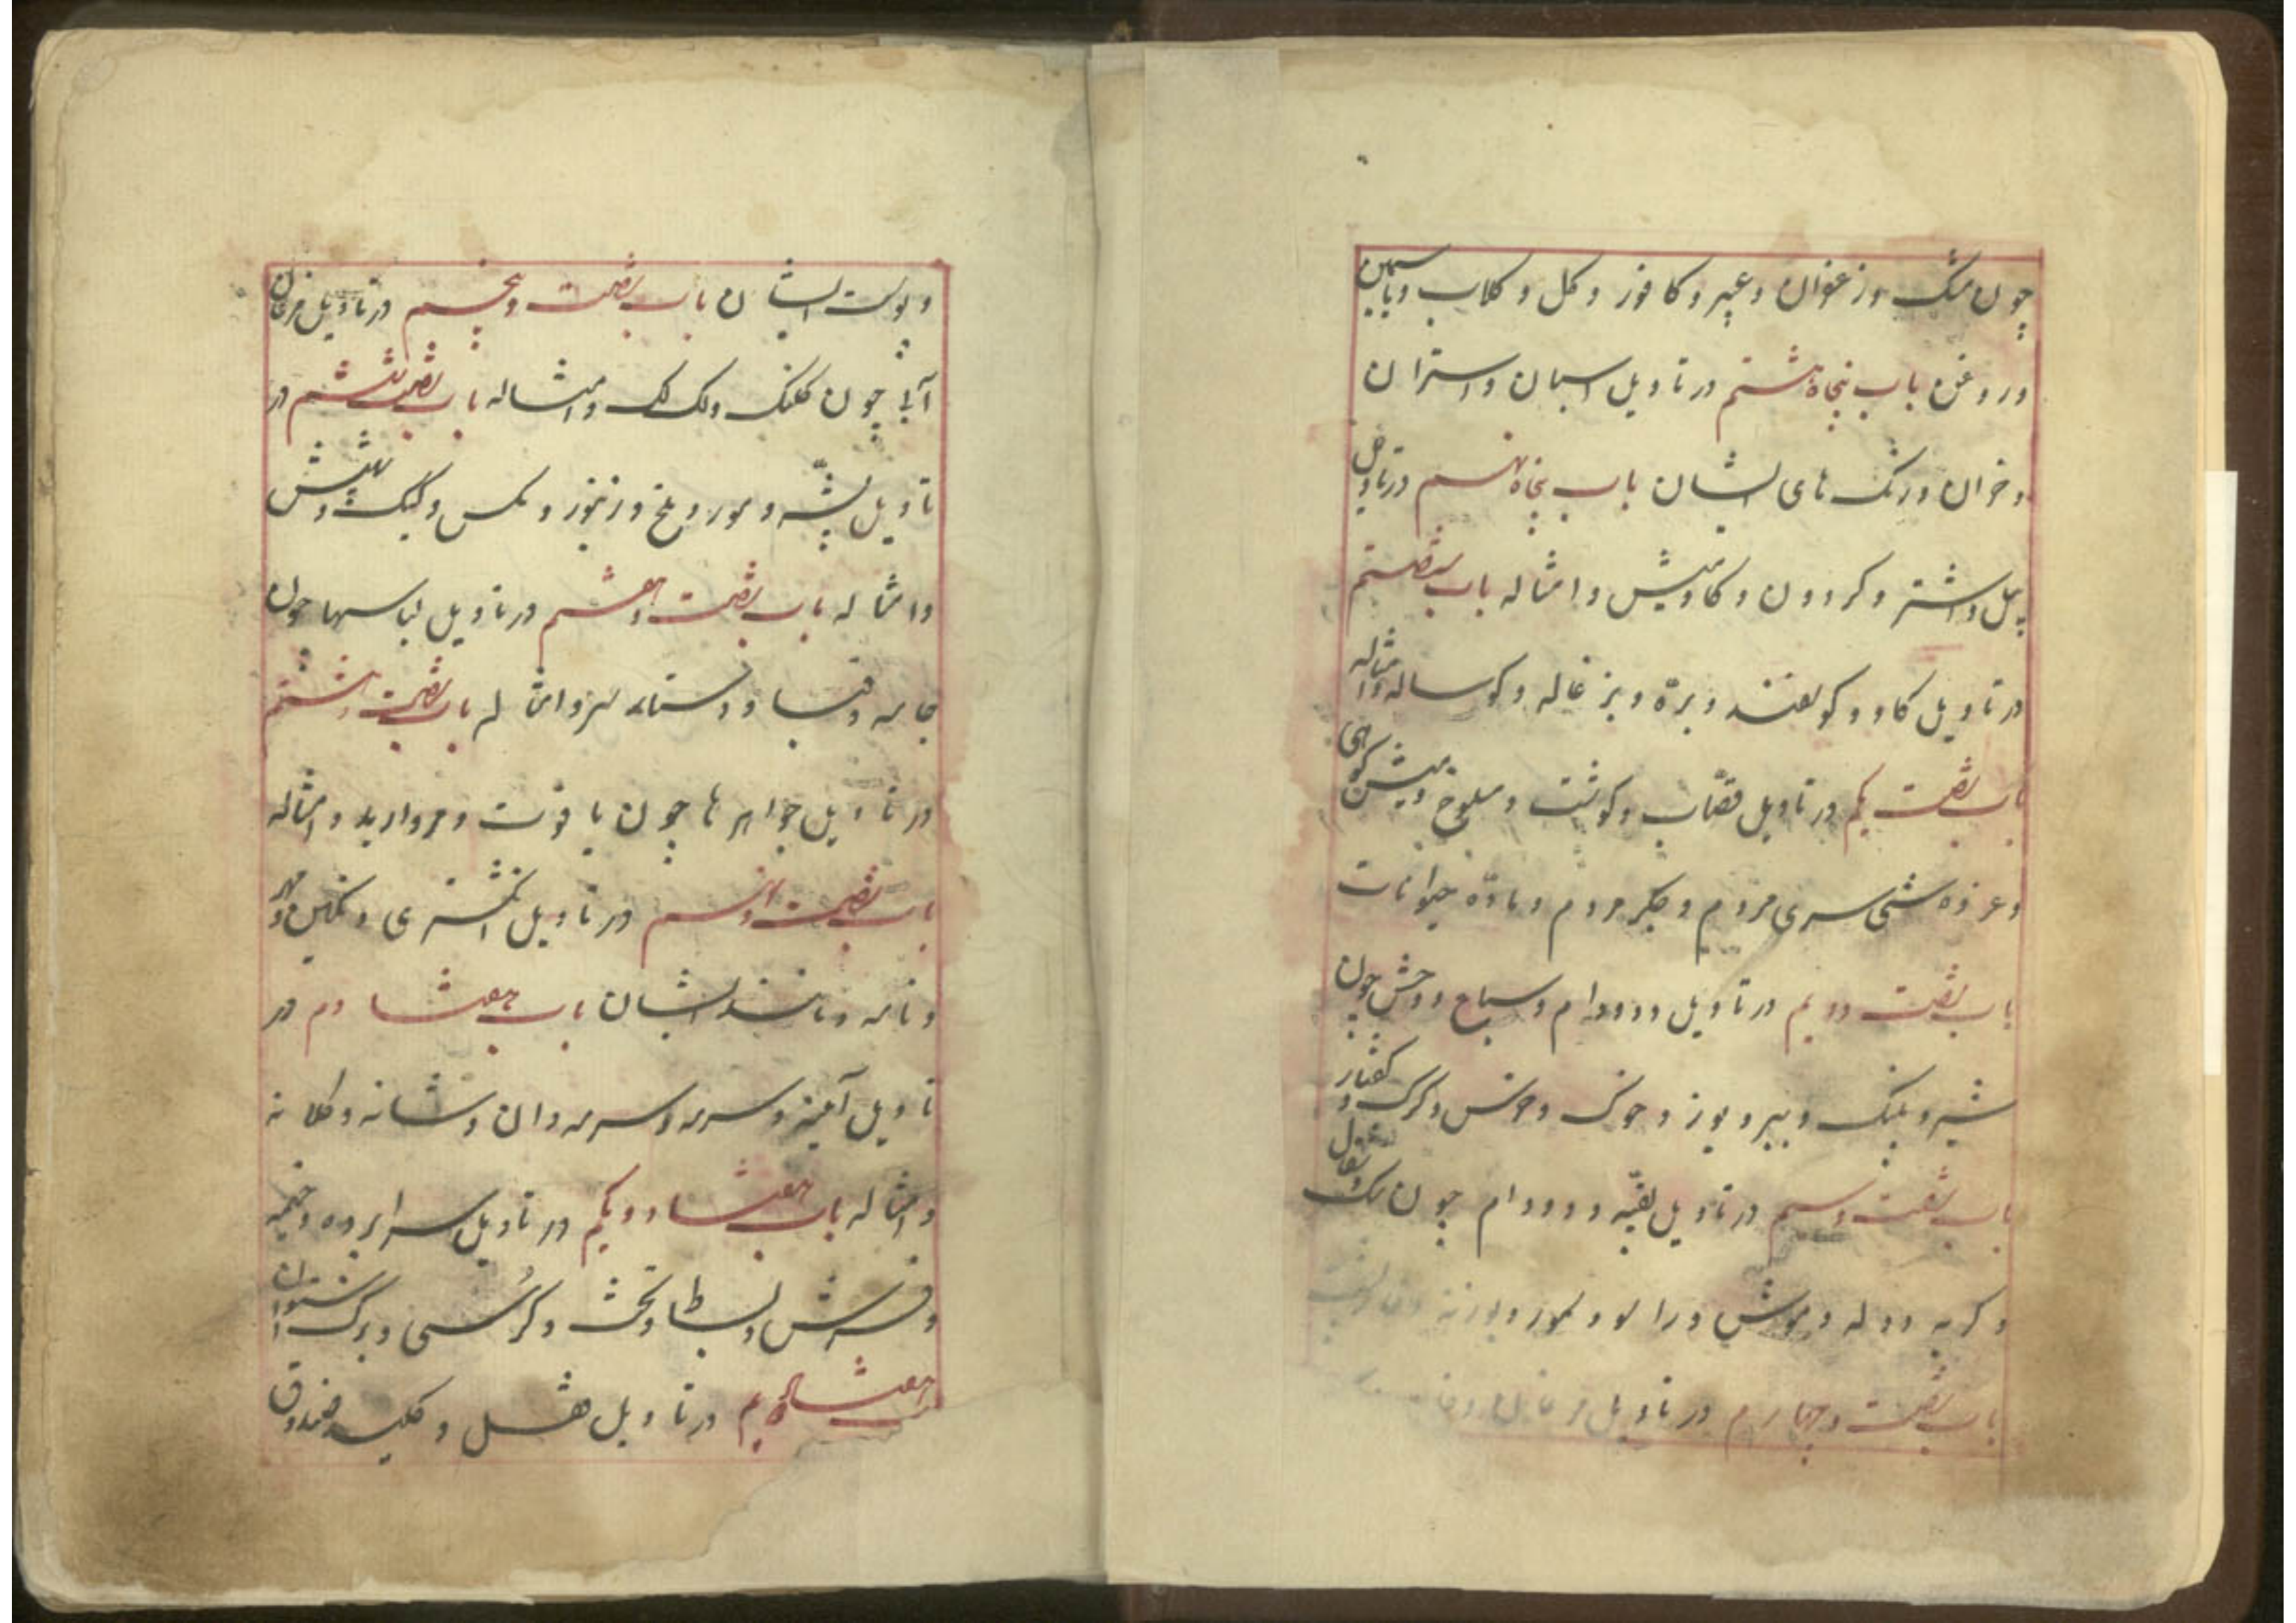 چون مشک و زعفران و عنبر و کافور و گل و گلاب و یاسمین
و روغن باب پنجاه هشتم در تاویل اسبان و استران
و خران و رنک های ایشان باب پنجاه نهم در تاویل
پیل و اشتر و کردون و کاومیش و امثاله باب شصتم
در تاویل کاو و کوسفند و بره و بزغاله و کوساله و امثاله
باب شصت یکم در تاویل قصّاب و کوشت و مسلوخ و میش کوهی
مردم و جکر مردم و ماده حیوانات
باب شصت دویم در تاویل دد و دام و سباع و وحش چون
شیر و پلنک و ببر و یوز و خوک و خرس و کرک و کفتار
باب شصت و سیم در تاویل بقیه دد و دام چون سک و شغال
و کربه و دله و موش و راسو و سمور و بوزنه
باب شصت و چهارم در تاویل مرغان
و پوست ایشان باب شصت و پنجم در تاویل مرغان
آبی چون کلنک و لک لک و امثاله باب شصت ششم در
تاویل پشّه و مور و ملخ و زنبور و مکس و کیک و شپش
و امثاله باب شصت و هفتم در تاویل لباسها چون
جامه و قبا و دستار و امثاله باب شصت و هشتم
در تاویل جواهرها چون یاقوت و مروارید و امثاله
باب شصت و نهم در تاویل انکشتری و نکین و مهر
و نامه و مانند ایشان باب هفتادم در
تاویل آینه و سرمه و سرمه دان و شانه و کلابه
و امثاله باب هفتاد و یکم در تاویل سراپرده و خیمه
و فرش و بساط و تخت و کرسی و برکستوان
هفتاد دویم در تاویل قفل و کلید و صندوق